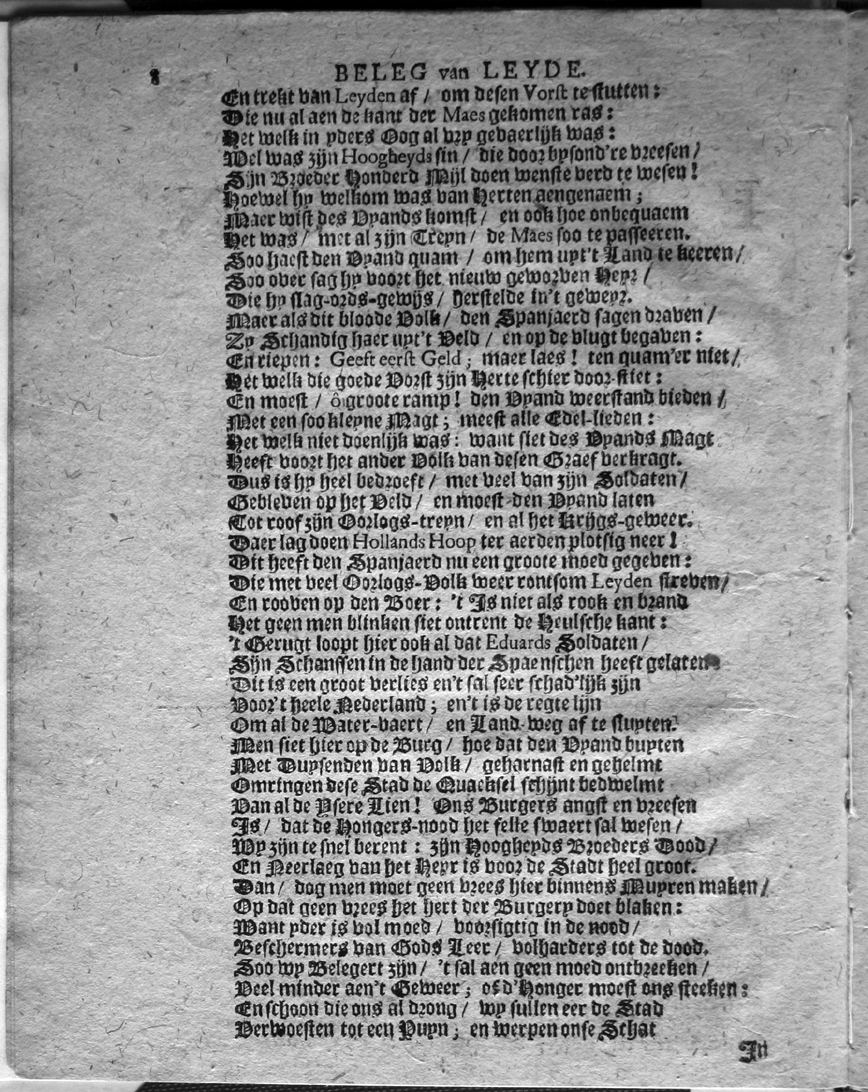 8 BELEG van LEYDE.
En trekt van Leyden af / om desen Vorst te stutten:
Die nu al aen de kant der Maes gekomen ras:
Het welk in yders Oog al vry gevaerlijk was:
Wel was zijn Hoogheyds sin / die door bysond're vreesen /
Sijn Broeder Honderd Mijl doen wenste verd te wesen!
Hoewel hy welkom was van Herten aengenaem;
Maer wist des Vyands komst / en ook hoe onbequaem
Het was / met al zijn Treyn / de Maes soo te passeeren.
Soo haest den Vyand quam / om hem uyt't Land te keeren /
Soo over sag hy voort het nieuw geworven Heyr /
Die hy slag-ords-gewijs / herstelde in't geweyr.
Maer als dit bloode Volk / den Spanjaerd sagen draven /
Zy Schandig haer uyt't Veld / en op de vlugt begaven:
En riepen: Geeft eerst Geld; maer laes! ten quam'er niet /
Het welk die goede Vorst zijn Herte schier door-stiet:
En moest / ô groote ramp! den Vyand weerstand bieden /
Met een soo kleyne Magt; meest alle Edel-lieden:
Het welk niet doenlijk was: want siet des Vyands Magt
Heeft voort het ander Volk van desen Graef verkragt.
Dus is hy heel bedroeft / met veel van zijn Soldaten /
Gebleven op het Veld / en moest den Vyand laten
Tot roof zijn Oorlogs-treyn / en al het Krijgs-geweer.
Daer lag doen Hollands Hoop ter aerden plotsig neer!
Dit heeft den Spanjaerd nu een groote moed gegeven:
Die met veel Oorlogs-Volk weer rontsom Leyden streven /
En rooven op den Boer: 't Is niet als rook en brand
Het geen men blinken siet ontrent de Heulsche kant:
't Gerugt loopt hier ook al dat Eduards Soldaten /
Sijn Schanssen in de hand der Spaenschen heeft gelaten
Dit is een groot verlies en't sal seer schad'lijk zijn
Voor't heele Nederland; en't is de regte lijn
Om al de Water-vaert / en Land-weg af te sluyten.
Men siet hier op de Burg / hoe dat den Vyand buyten
Met Duysenden van Volk / geharnast en gehelmt
Omringen dese Stad de Quacksel schijnt bedwelmt
Van al de Ysere Lien! Ons Burgers angst en vreesen
Is / dat de Hongers-nood het felle swaert sal wesen /
Wy zijn te snel berent: zijn Hoogheyds Broeders Dood /
En Neerlaeg van het Heyr is voor de Stadt heel groot.
Dan / dog men moet geen vrees hier binnens Muyren maken /
Op dat geen vrees het hert der Burgery doet blaken:
Want yder is vol moed / voorsigtig in de nood /
Beschermers van Gods Leer / volharders tot de dood.
Soo wy Belegert zijn / 't sal aen geen moed ontbreeken /
Veel minder aen't Geweer; of d'Honger moest ons steeken:
En schoon die ons al drong / wy sullen eer de Stad
Verwoesten tot een Puyn; en werpen onse Schat
In